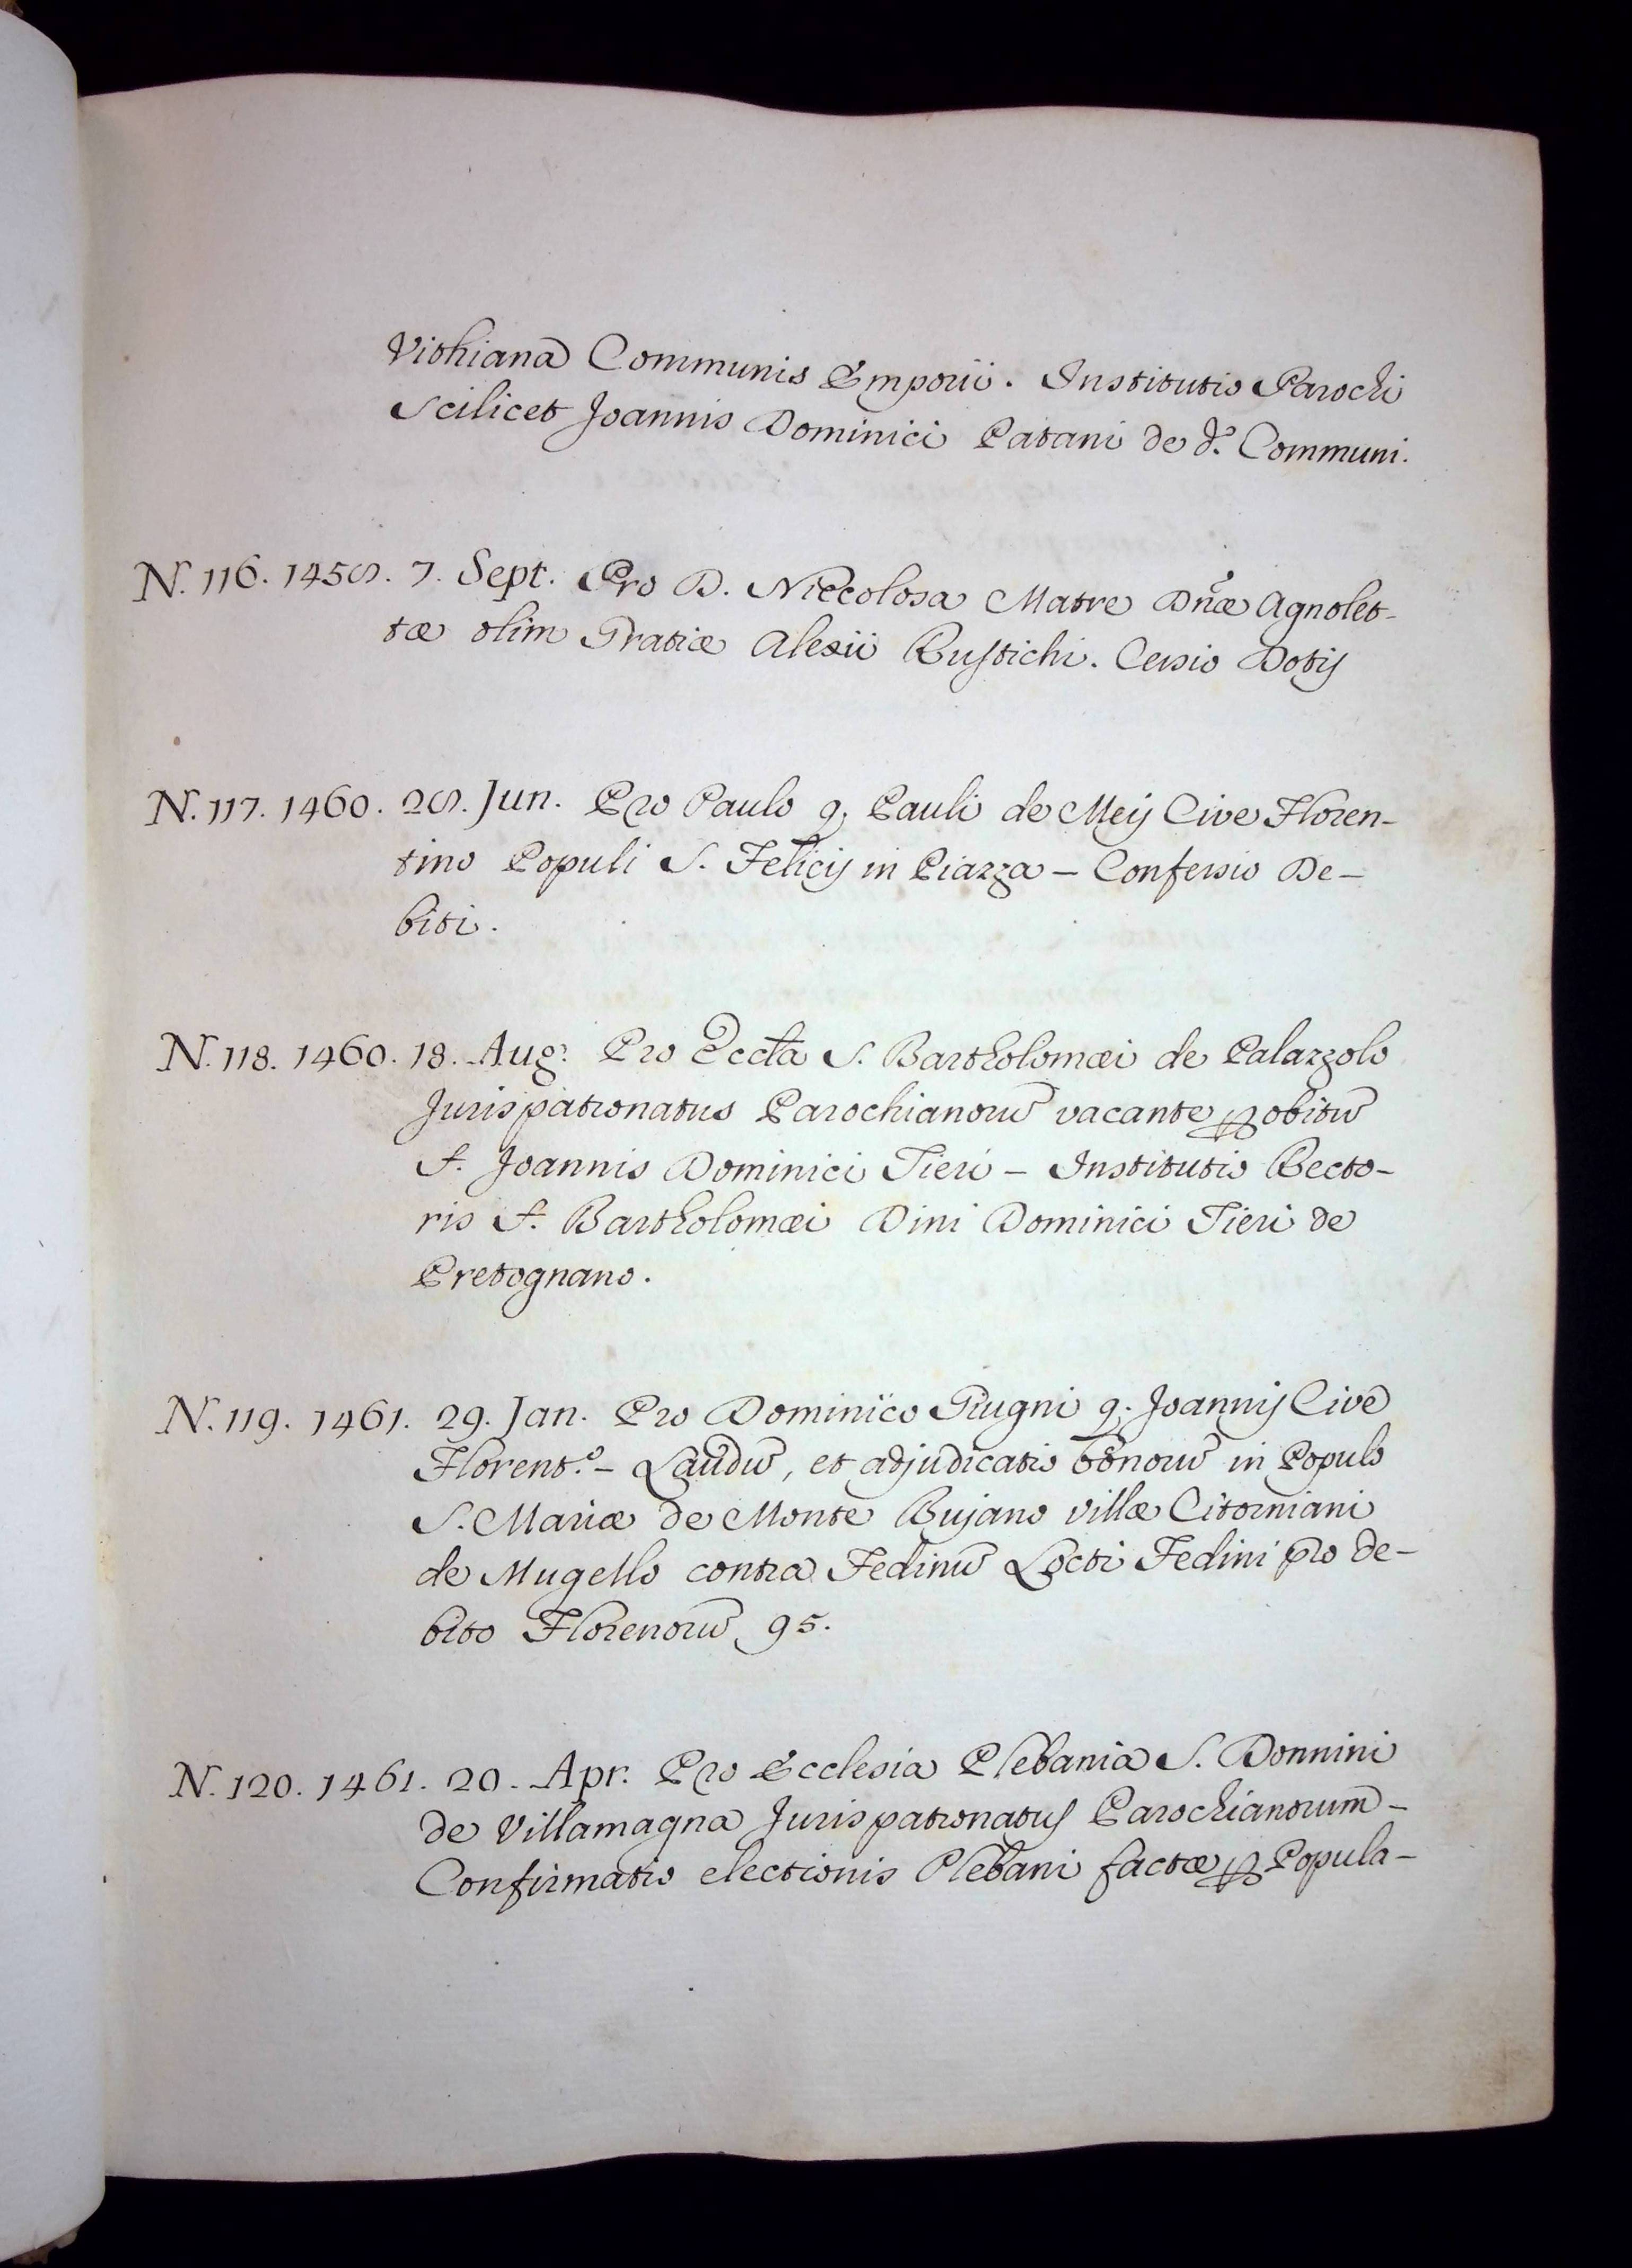 Vithiana Communis Emporii. Institutio Parochi
Scilicet Joannis Dominici Patani de d.º Communi.
N. 116. 1458. 7. Sept. Pro D. Niccolosa Matre Dñæ Agnolet-
tæ olim Gratiæ Alexii Rustichi. Cessio Dotis
N. 117. 1460. 28. Jun. Pro Paulo q. Pauli de Meij Cive Floren-
tino Populi S. Felicis in Piazza – Confessio De-
biti.
N. 118. 1460. 18. Aug. Pro Eccľa S. Bartholomæi de Palazzolo
Jurispatronatus Parochianorũ vacante ꝑ obitũ
S. Joannis Dominici Tieri – Institutio Recto-
ris S. Bartholomæi Dini Dominici Tieri de
Pretognano.
N. 119. 1461. 29. Jan. Pro Dominico Giugni q. Joannis Cive
Florent.º – Laudũ, et adjudicatio bõnorũ in Populo
S. Mariæ de Monte Bujano villæ Citorniani
de Mugello contra Fedinũ Locti Fedini pro de-
bito Florenorũ 95.
N. 120. 1461. 20. Apr. Pro Ecclesia Plebania S. Donnini
de Villamagna Jurispatronatus Parochianorum –
Confirmatio electionis Plebani factæ ꝑ Popula-